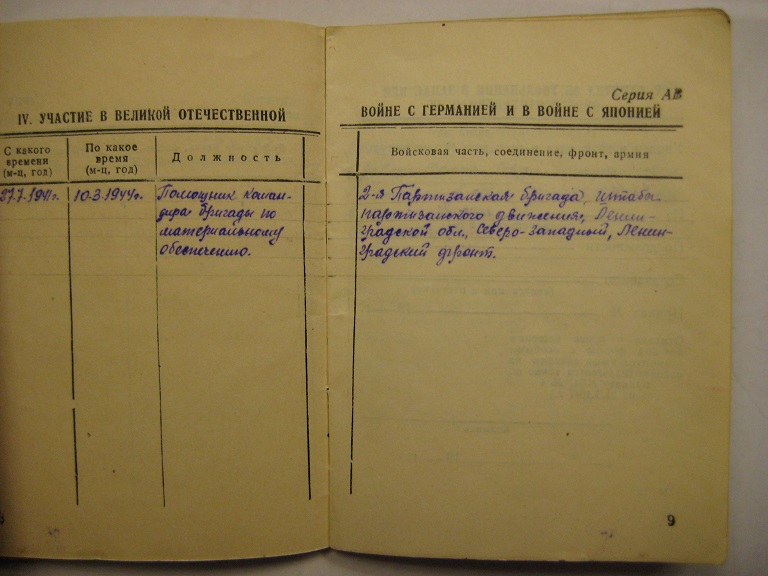 Серия АВ
IV. УЧАСТИЕ В ВЕЛИКОЙ ОТЕЧЕСТВЕННОЙ
ВОЙНЕ С ГЕРМАНИЕЙ И В ВОЙНЕ С ЯПОНИЕЙ
С какого
времени
(м-ц, год)
По какое
время
(м-ц, год)
Должность
Войсковая часть, соединение, фронт, армия
27.7.1941г.
10.3.1944г.
Помощник коман-
дира бригады по
материальному
обеспечению.
2-я Партизанская бригада, штаба
партизанского движения, Ленин-
градской обл., Северо-западный, Ленин-
градский фронт.
9